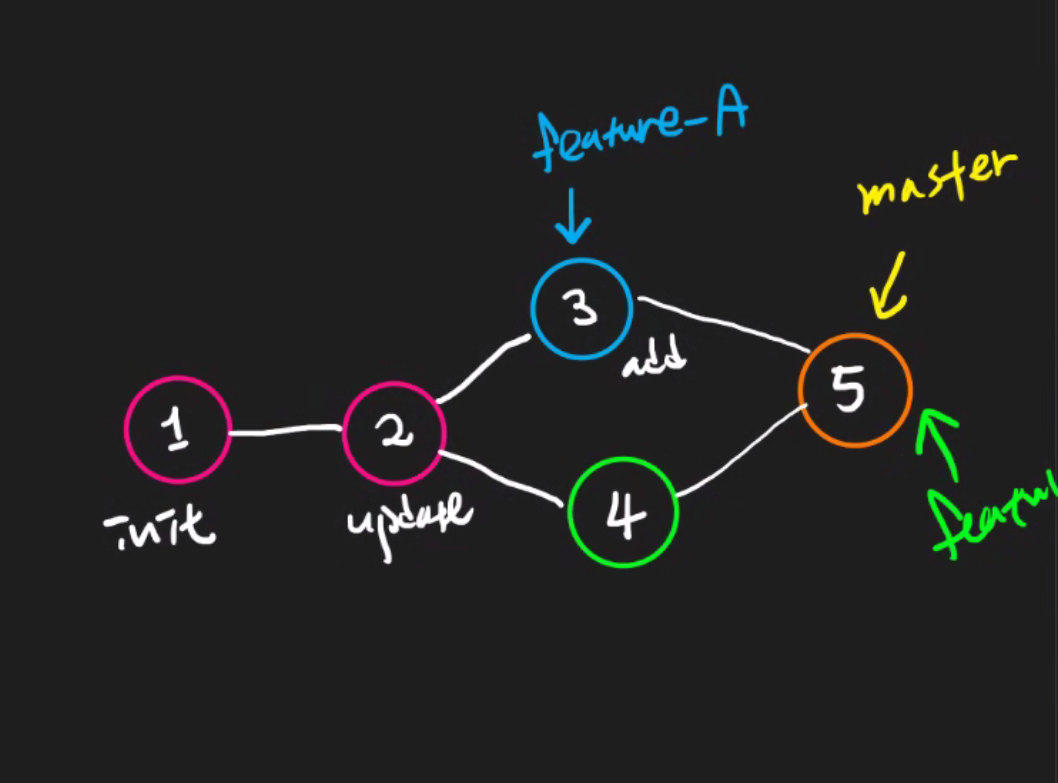 feature-A
master
3
add
5
1
2
init
update
4
featu